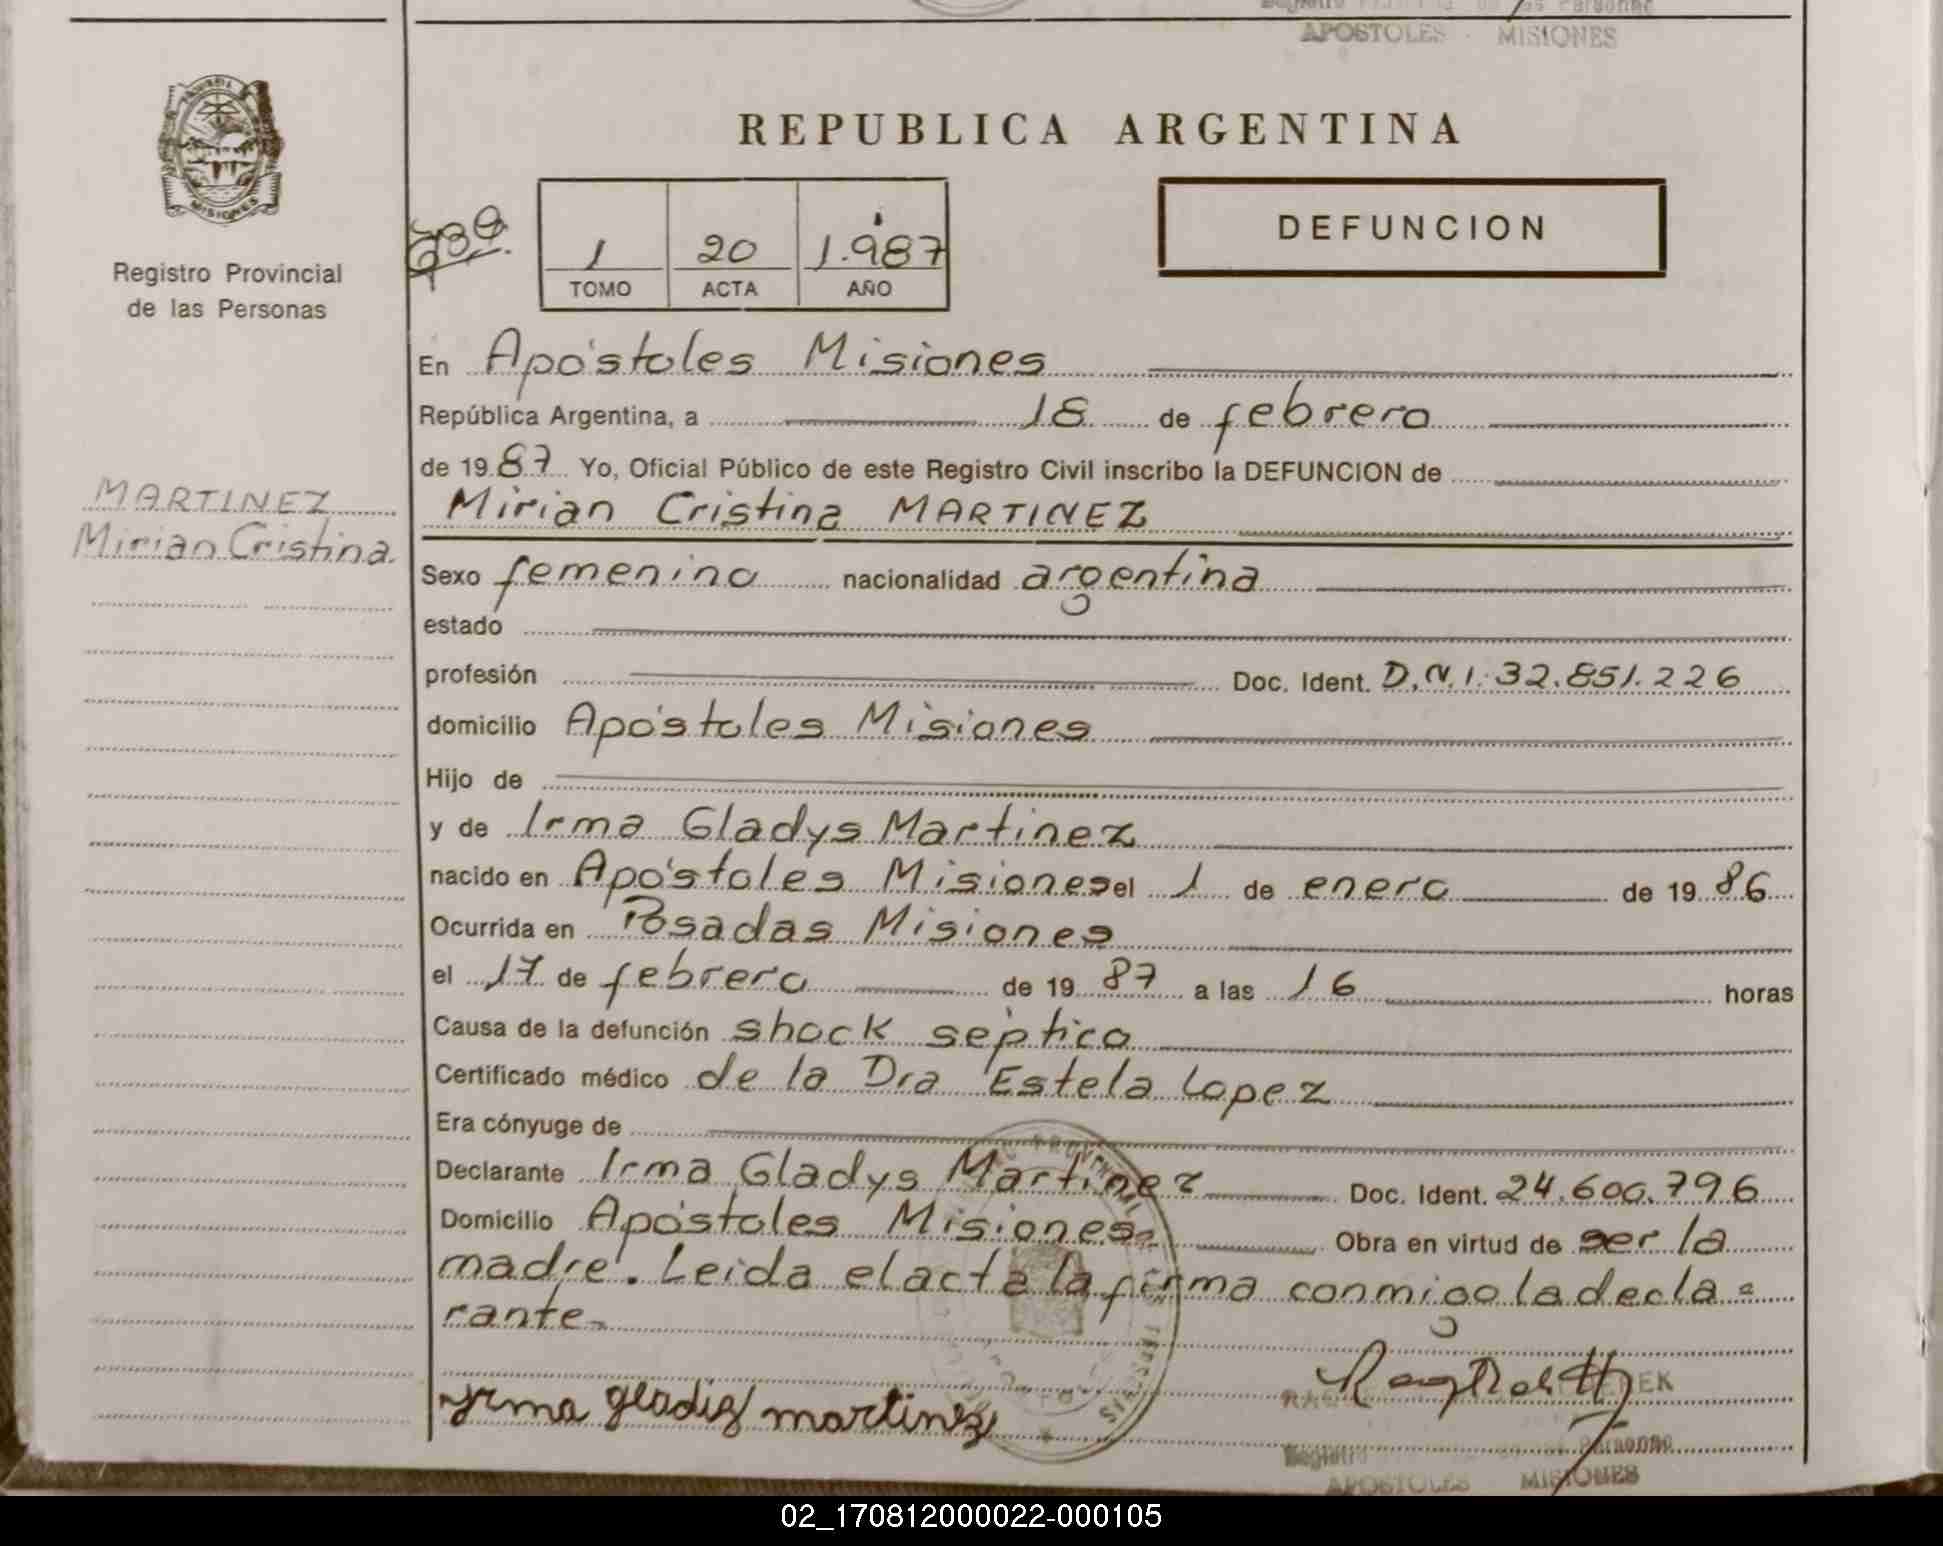 APOSTOLES - MISIONES
MISIONES
Registro Provincial
de las Personas
MARTINEZ
Mirian Cristina
REPUBLICA ARGENTINA
1 20 1.987
TOMO ACTA AÑO
DEFUNCION
En Apóstoles Misiones
República Argentina, a 18 de febrero
de 1987 Yo, Oficial Público de este Registro Civil inscribo la DEFUNCION de
Mirian Cristina MARTINEZ
Sexo femenino nacionalidad argentina
estado
profesión Doc. Ident. D.N.I. 32.851.226
domicilio Apóstoles Misiones
Hijo de
y de Irma Gladys Martinez
nacido en Apóstoles Misiones el 1 de enero de 1986
Ocurrida en Posadas Misiones
el 17 de febrero de 1987 a las 16 horas
Causa de la defunción shock séptico
Certificado médico de la Dra Estela Lopez
Era cónyuge de
Declarante Irma Gladys Martinez Doc. Ident. 24.600.796
Domicilio Apóstoles Misiones Obra en virtud de ser la
madre. Leida el acta la firma conmigo la decla=
rante.
yrma gladis martinez
APOSTOLES MISIONES
02_170812000022-000105